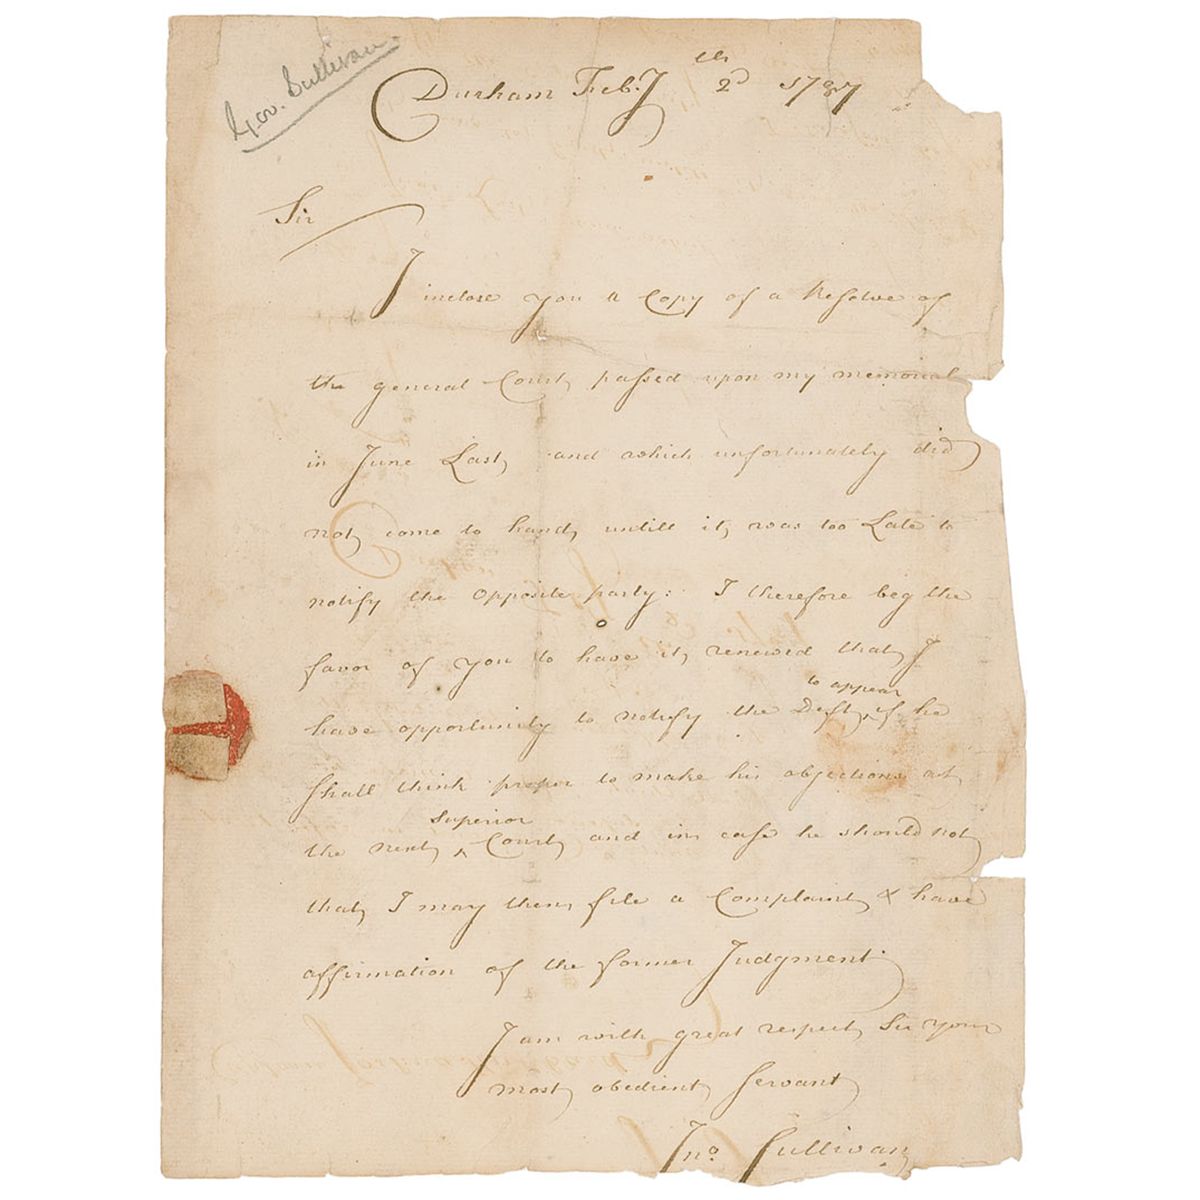 Gov. Sullivan
Durham Feb.y 2d 1787
Sir
I inclose you a Copy of a Resolve of
the general Court passed upon my memorial
in June Last and which unfortunately did
not come to hand untill it was too Late to
notify the Opposite party: I therefore beg the
favor of you to have it renewed that I
to appear
have opportunity to notify the Deft ^ if he
shall think proper to make his objections at
Superior
the next ^ Court and in case he should not
that I may then file a Complaint & have
affirmation of the former Judgment
I am with great respect Sir your
most obedient servant
Jno Sullivan